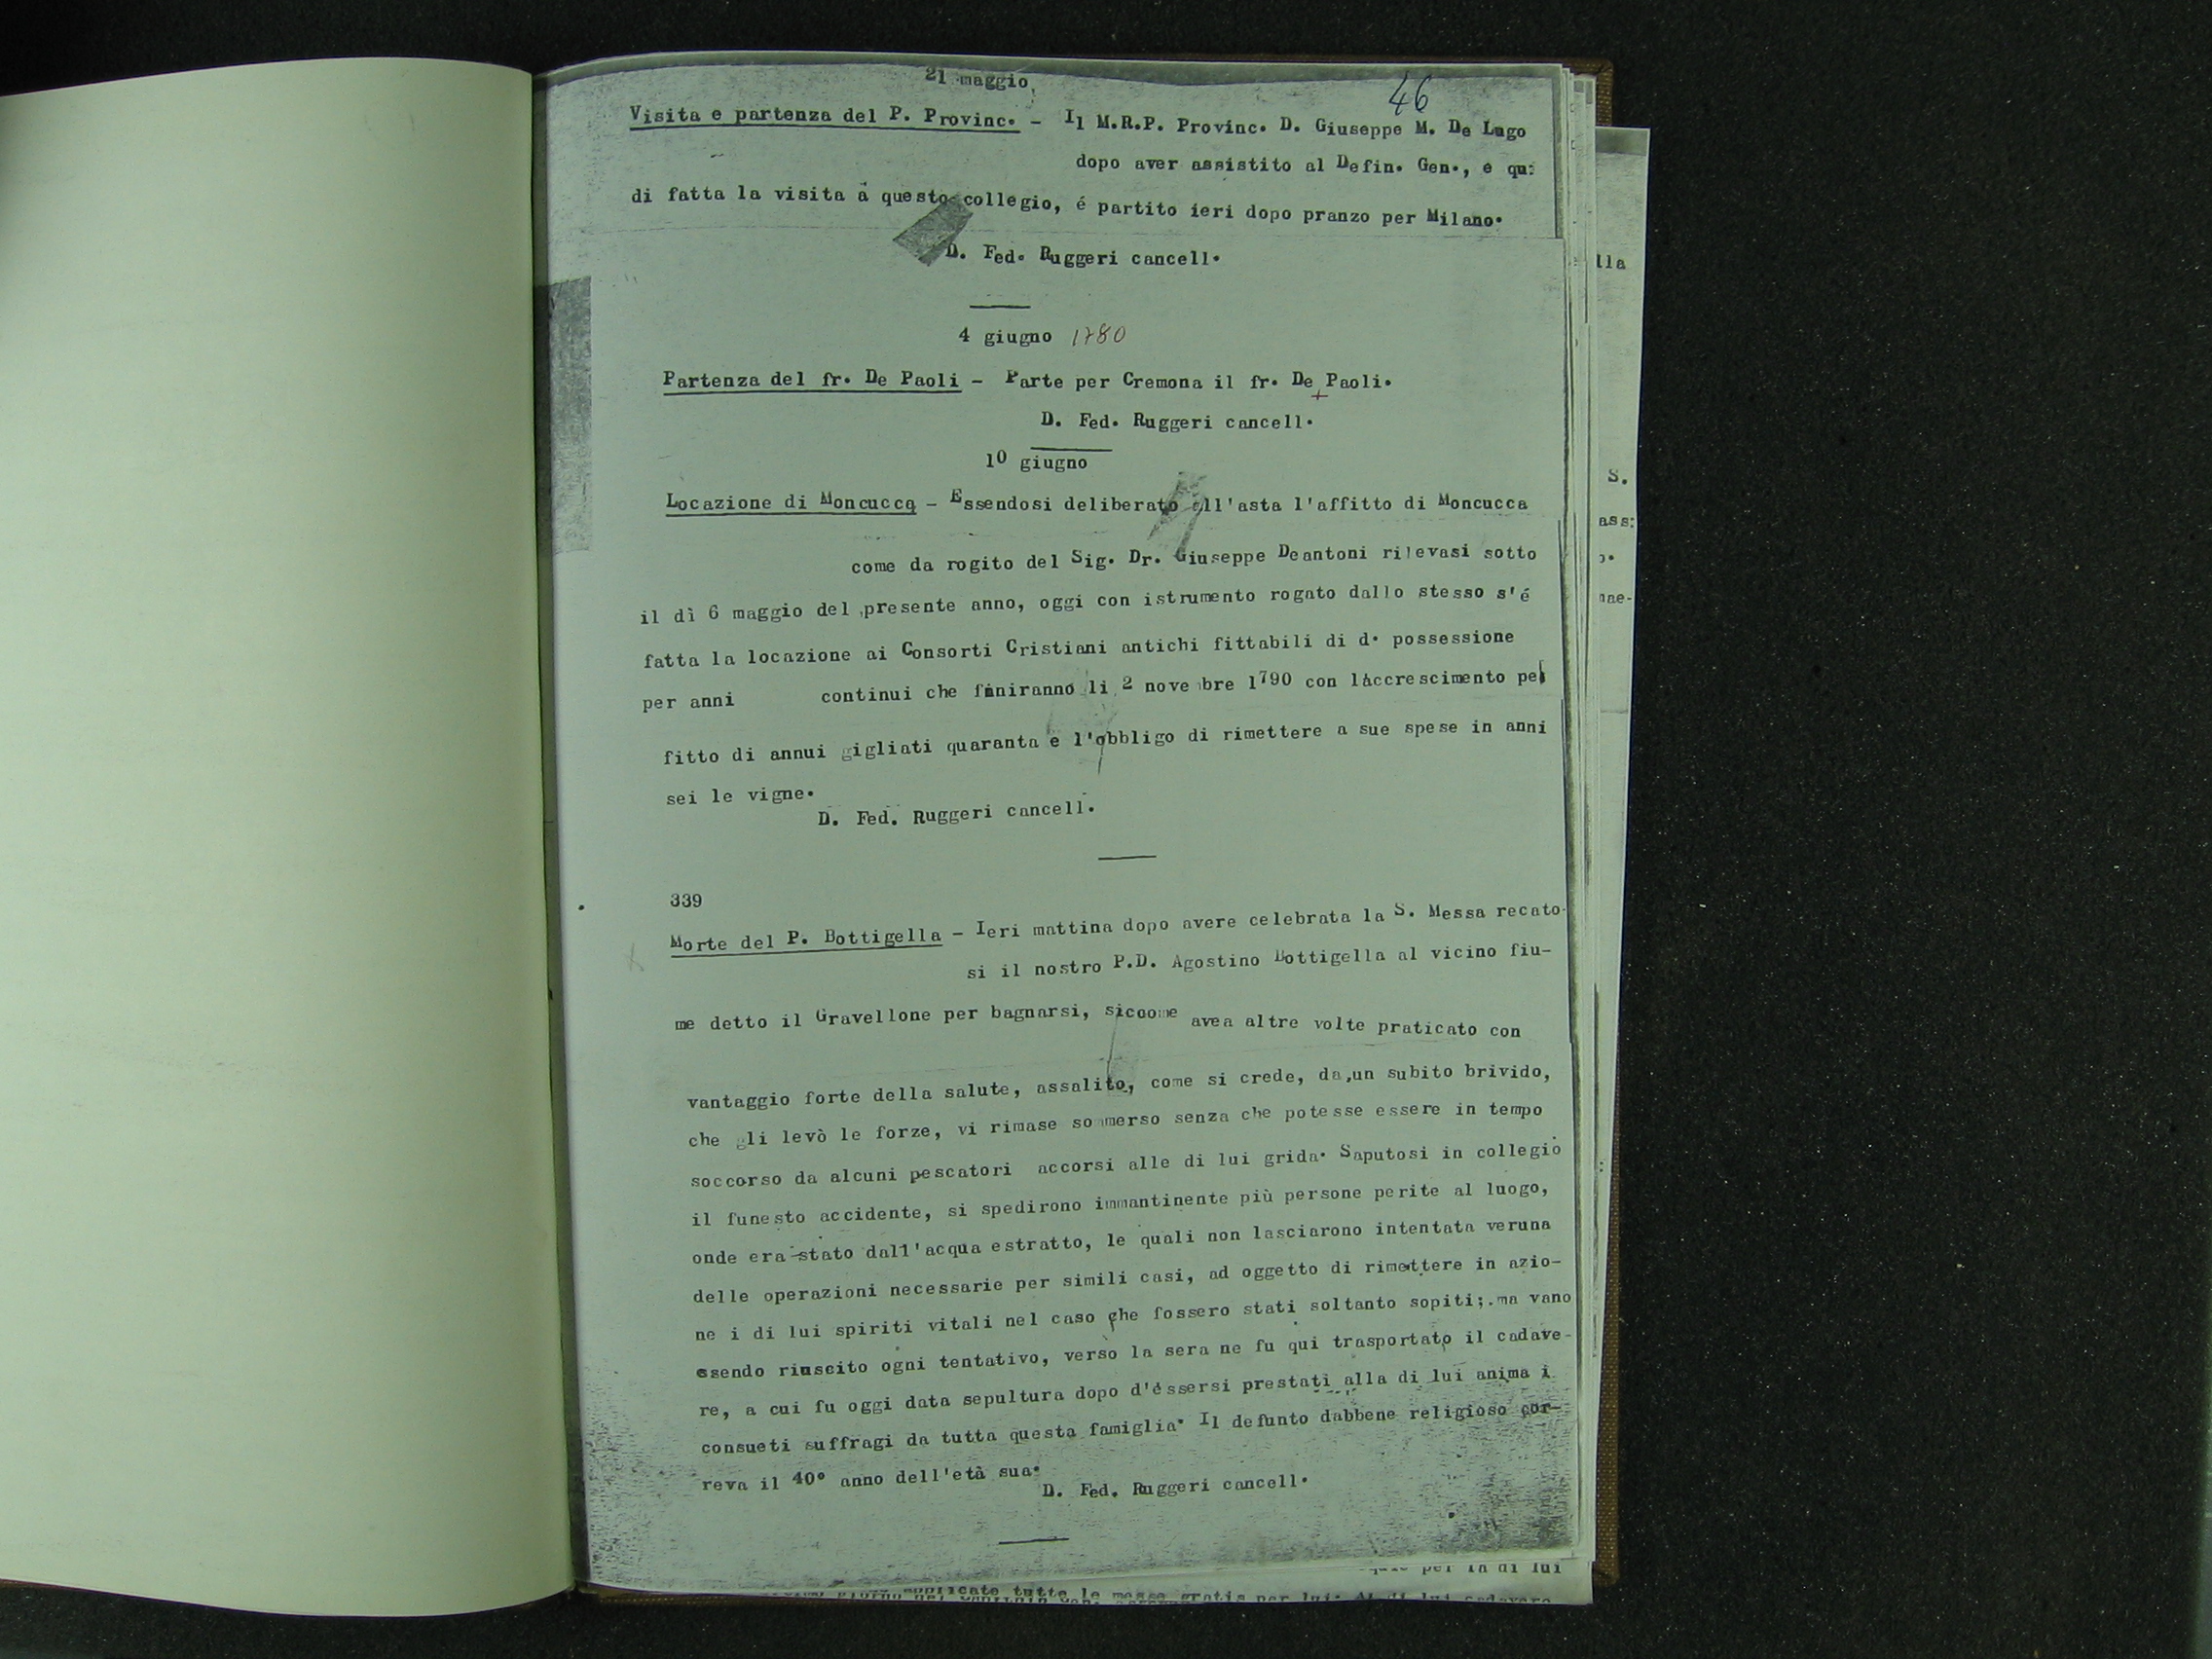 21 maggio
46
Visita e partenza del P. Provinc. - Il M.R.P. Provinc. D. Giuseppe M. De Lugo
dopo aver assistito al Defin. Gen., e qu:
di fatta la visita a questo collegio, é partito ieri dopo pranzo per Milano.
D. Fed. Ruggeri cancell.
4 giugno 1780
Partenza del fr. De Paoli - Parte per Cremona il fr. De Paoli.
D. Fed. Ruggeri cancell.
10 giugno
Locazione di Moncucca - Essendosi deliberato all'asta l'affitto di Moncucca
come da rogito del Sig. Dr. Giuseppe Deantoni rilevasi sotto
il dì 6 maggio del presente anno, oggi con istrumento rogato dallo stesso s'é
fatta la locazione ai Consorti Cristiani antichi fittabili di d. possessione
per anni continui che finiranno li 2 novembre 1790 con l'accrescimento pel
fitto di annui gigliati quaranta e l'obbligo di rimettere a sue spese in anni
sei le vigne.
D. Fed. Ruggeri cancell.
339
Morte del P. Bottigella - Ieri mattina dopo avere celebrata la S. Messa recato-
si il nostro P.D. Agostino Bottigella al vicino fiu-
me detto il Gravellone per bagnarsi, siccome avea altre volte praticato con
vantaggio forte della salute, assalito, come si crede, da un subito brivido,
che gli levò le forze, vi rimase sommerso senza che potesse essere in tempo
soccorso da alcuni pescatori accorsi alle di lui grida. Saputosi in collegio
il funesto accidente, si spedirono immantinente più persone perite al luogo,
onde era stato dall'acqua estratto, le quali non lasciarono intentata veruna
delle operazioni necessarie per simili casi, ad oggetto di rimettere in azio-
ne i di lui spiriti vitali nel caso che fossero stati soltanto sopiti; ma vano
esendo riuscito ogni tentativo, verso la sera ne fu qui trasportato il cadave-
re, a cui fu oggi data sepultura dopo d'éssersi prestati alla di lui anima i
consueti suffragi da tutta questa famiglia. Il defunto dabbene religioso cor-
reva il 40° anno dell'età sua.
D. Fed. Ruggeri cancell.
lla
S.
ass:
nae-
per la di lui
applicate tutte le messe gratis per lui. Al di lui cadavere